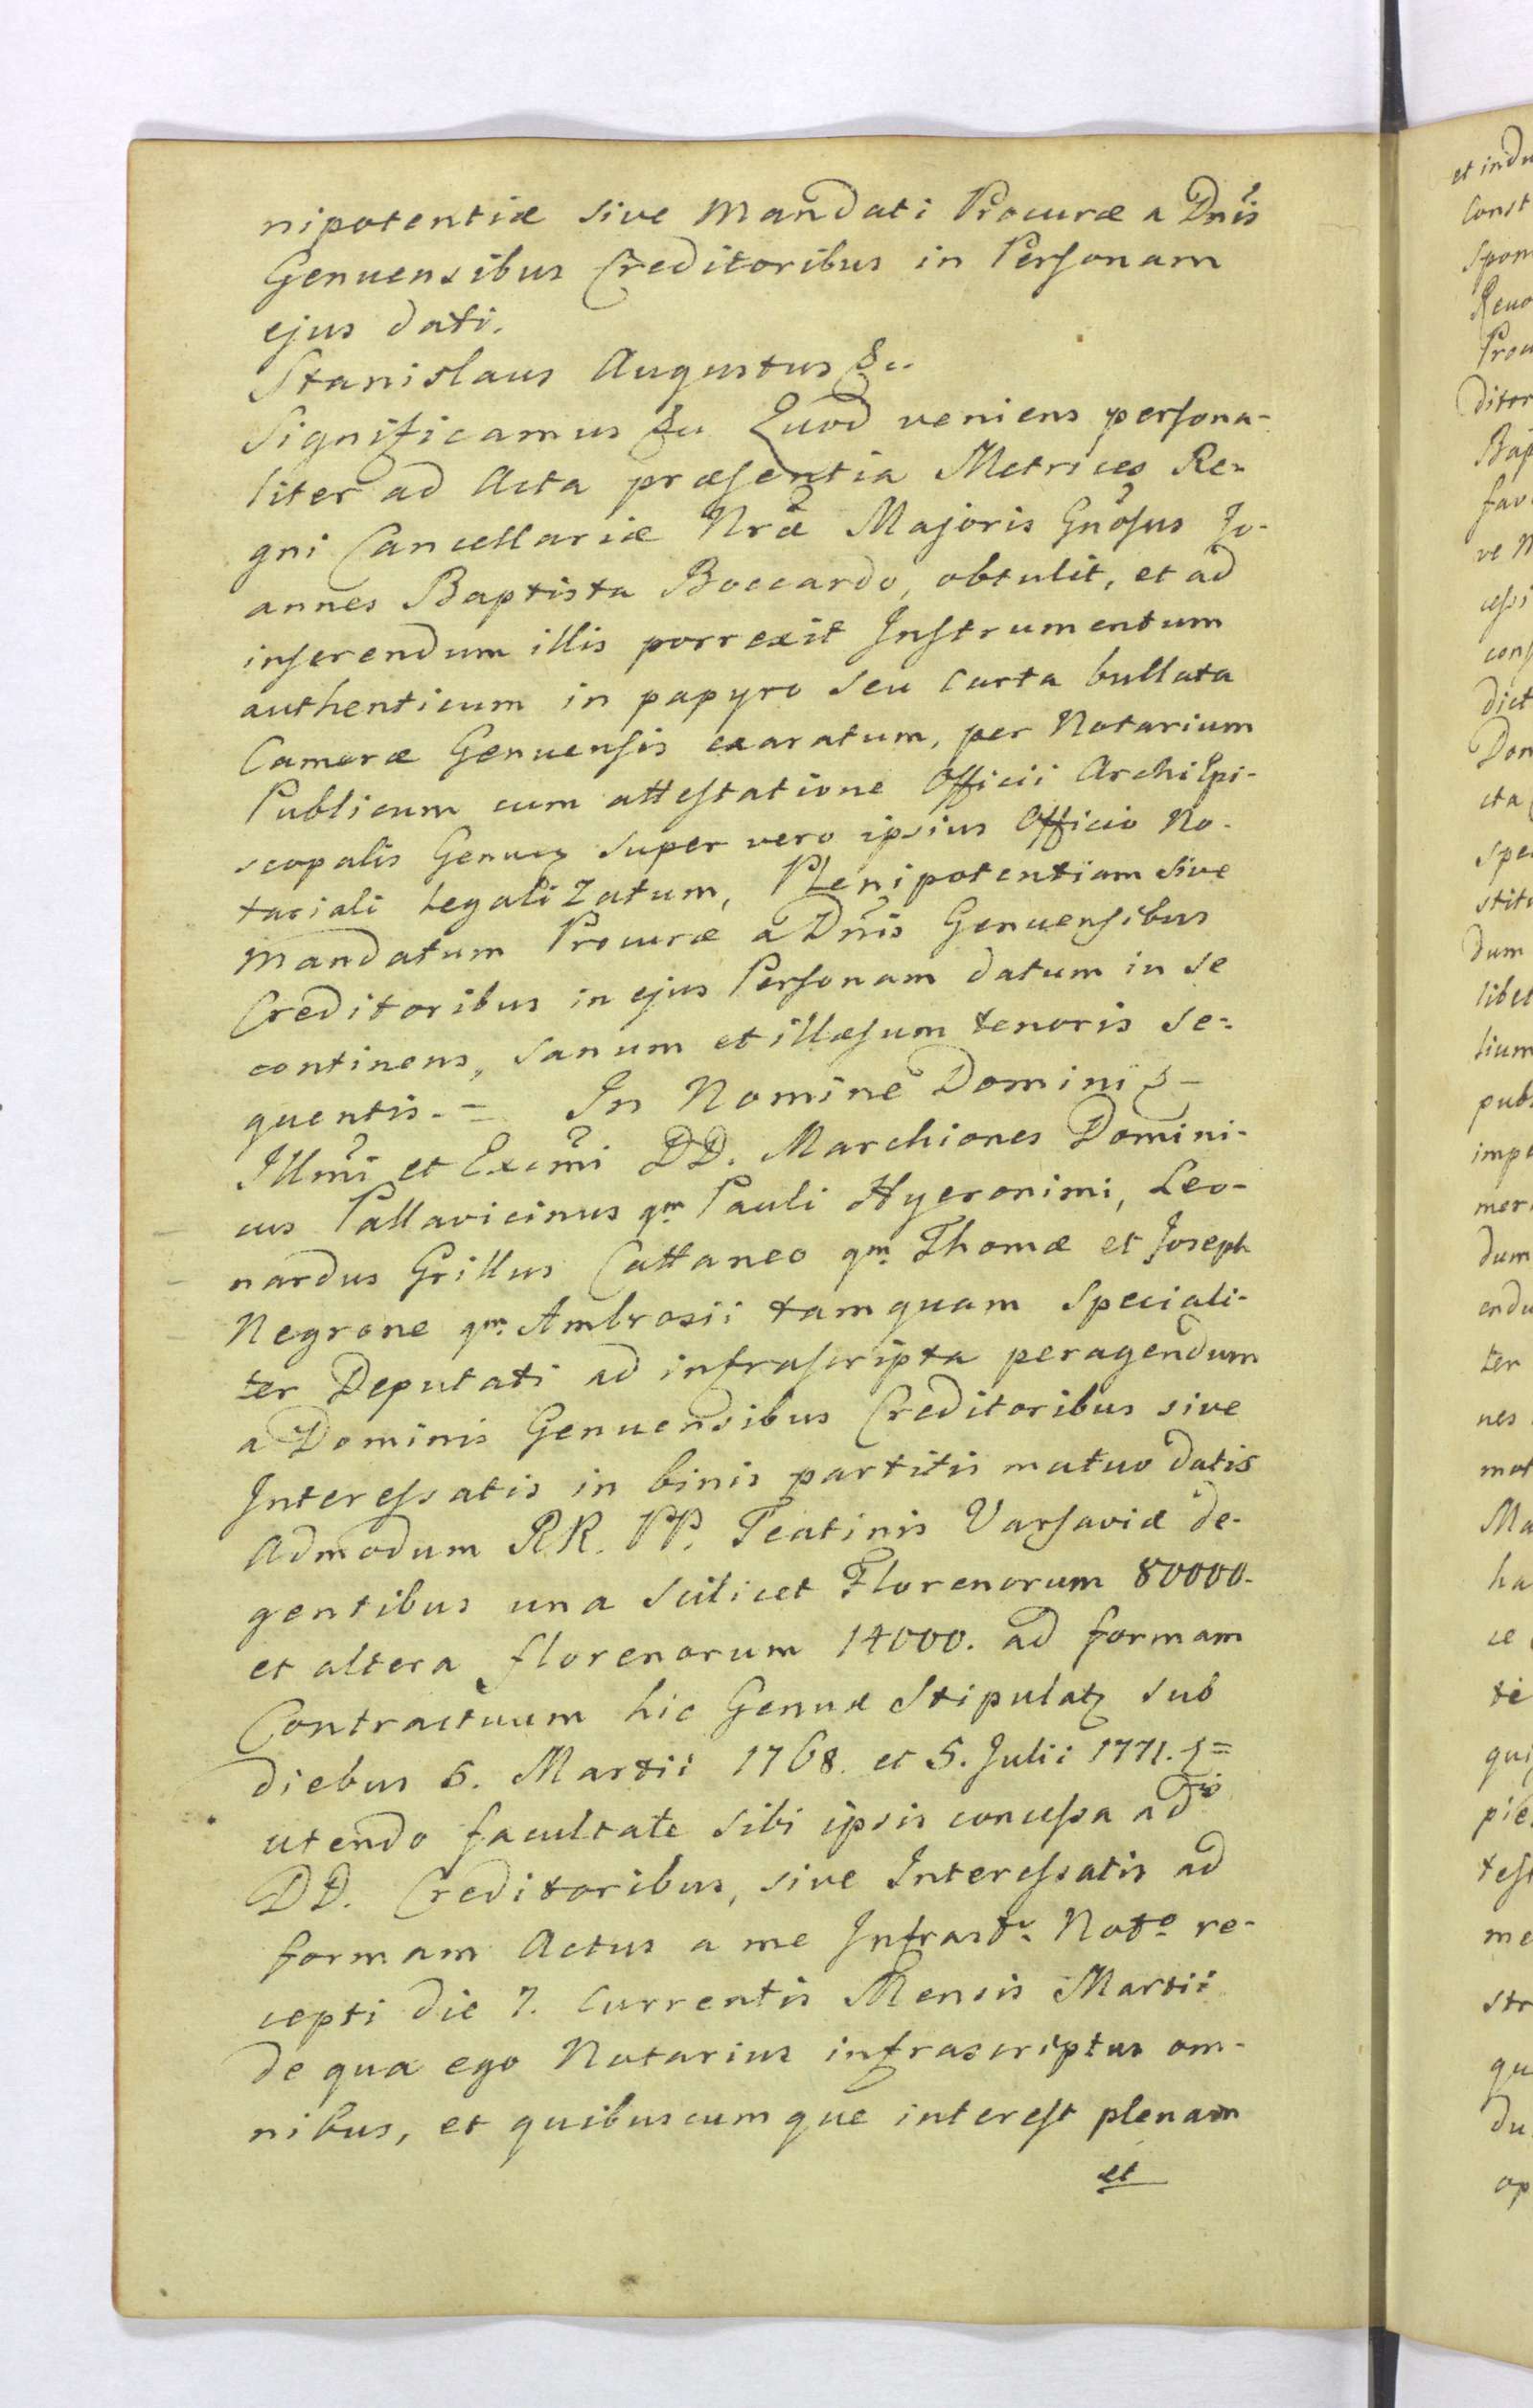 nipotentiæ sive Mandati Procuræ a Dnis
Genuensibus Creditoribus in Personam
ejus dati.
Stanislaus Augustus &c.
Significamus &c. Quod veniens persona-
liter ad Acta præsentia Metrices Re-
gni Cancellariæ Nræ Majoris Gnosus Jo-
annes Baptista Boccardo, obtulit, et ad
inserendum illis porrexit Instrumentum
authenticum in papyro seu Carta bullata
Cameræ Genuensis exaratum, per Notarium
Publicum cum attestatione Officii ArchiEpi-
scopalis Genuæ super vero ipsius Officio No-
tariali legalizatum, Plenipotentiam sive
Mandatum Procuræ a Dnis Genuensibus
Creditoribus in ejus Personam datum in se
continens, sanum et illæsum tenoris se-
quentis. = In Nomine Domini
Illmi et Excmi DD. Marchiones Domini-
cus Pallavicinus qm Pauli Hyeronimi, Leo-
nardus Grillus Cattaneo qm. Thomæ et Joseph
Negrone qm. Ambrosii tamquam speciali-
ter Deputati ad infrascripta peragendum
a Dominis Genuensibus Creditoribus sive
Interessatis in binis partitis mutuo datis
Admodum RR. PP. Teatinis Varsaviæ de-
gentibus una scilicet Florenorum 80000.
et altera florenorum 14000. ad formam
Contractuum hic Genuæ Stipulat sub
diebus 6. Martii 1768. et 5. Julii 1771. =
utendo facultate sibi ipsis concessa a dis
DD. Creditoribus, sive Interessatis ad
formam Actus a me Infrasto. Noto. re-
cepti die 7. Currentis Mensis Martii
de qua ego Notarius infrascriptus om-
nibus, et quibuscumque interest plenam
et
et indu
Const
Spon
Reno
Proc
ditor
Bap
fav
ve M
cessi
cons
dict
Dom
cta
spe
stit
dum
libet
lium
pub
impe
mer
dum
endu
ter
nes
mot
Ma
ha
ce
te
qui
pie
test
me
str
qu
du
op